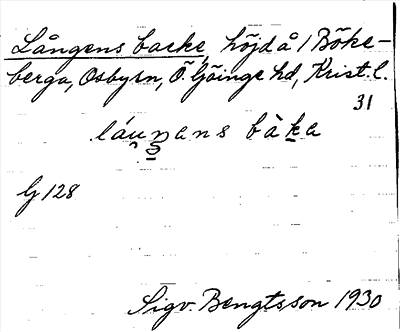 Långens backe, höjd å 1 Böke-
berga, Osbysn, Ö. Göinge hd, Krist. l.
31
láuŋans bàka
G 128
Sigv. Bengtsson 1930